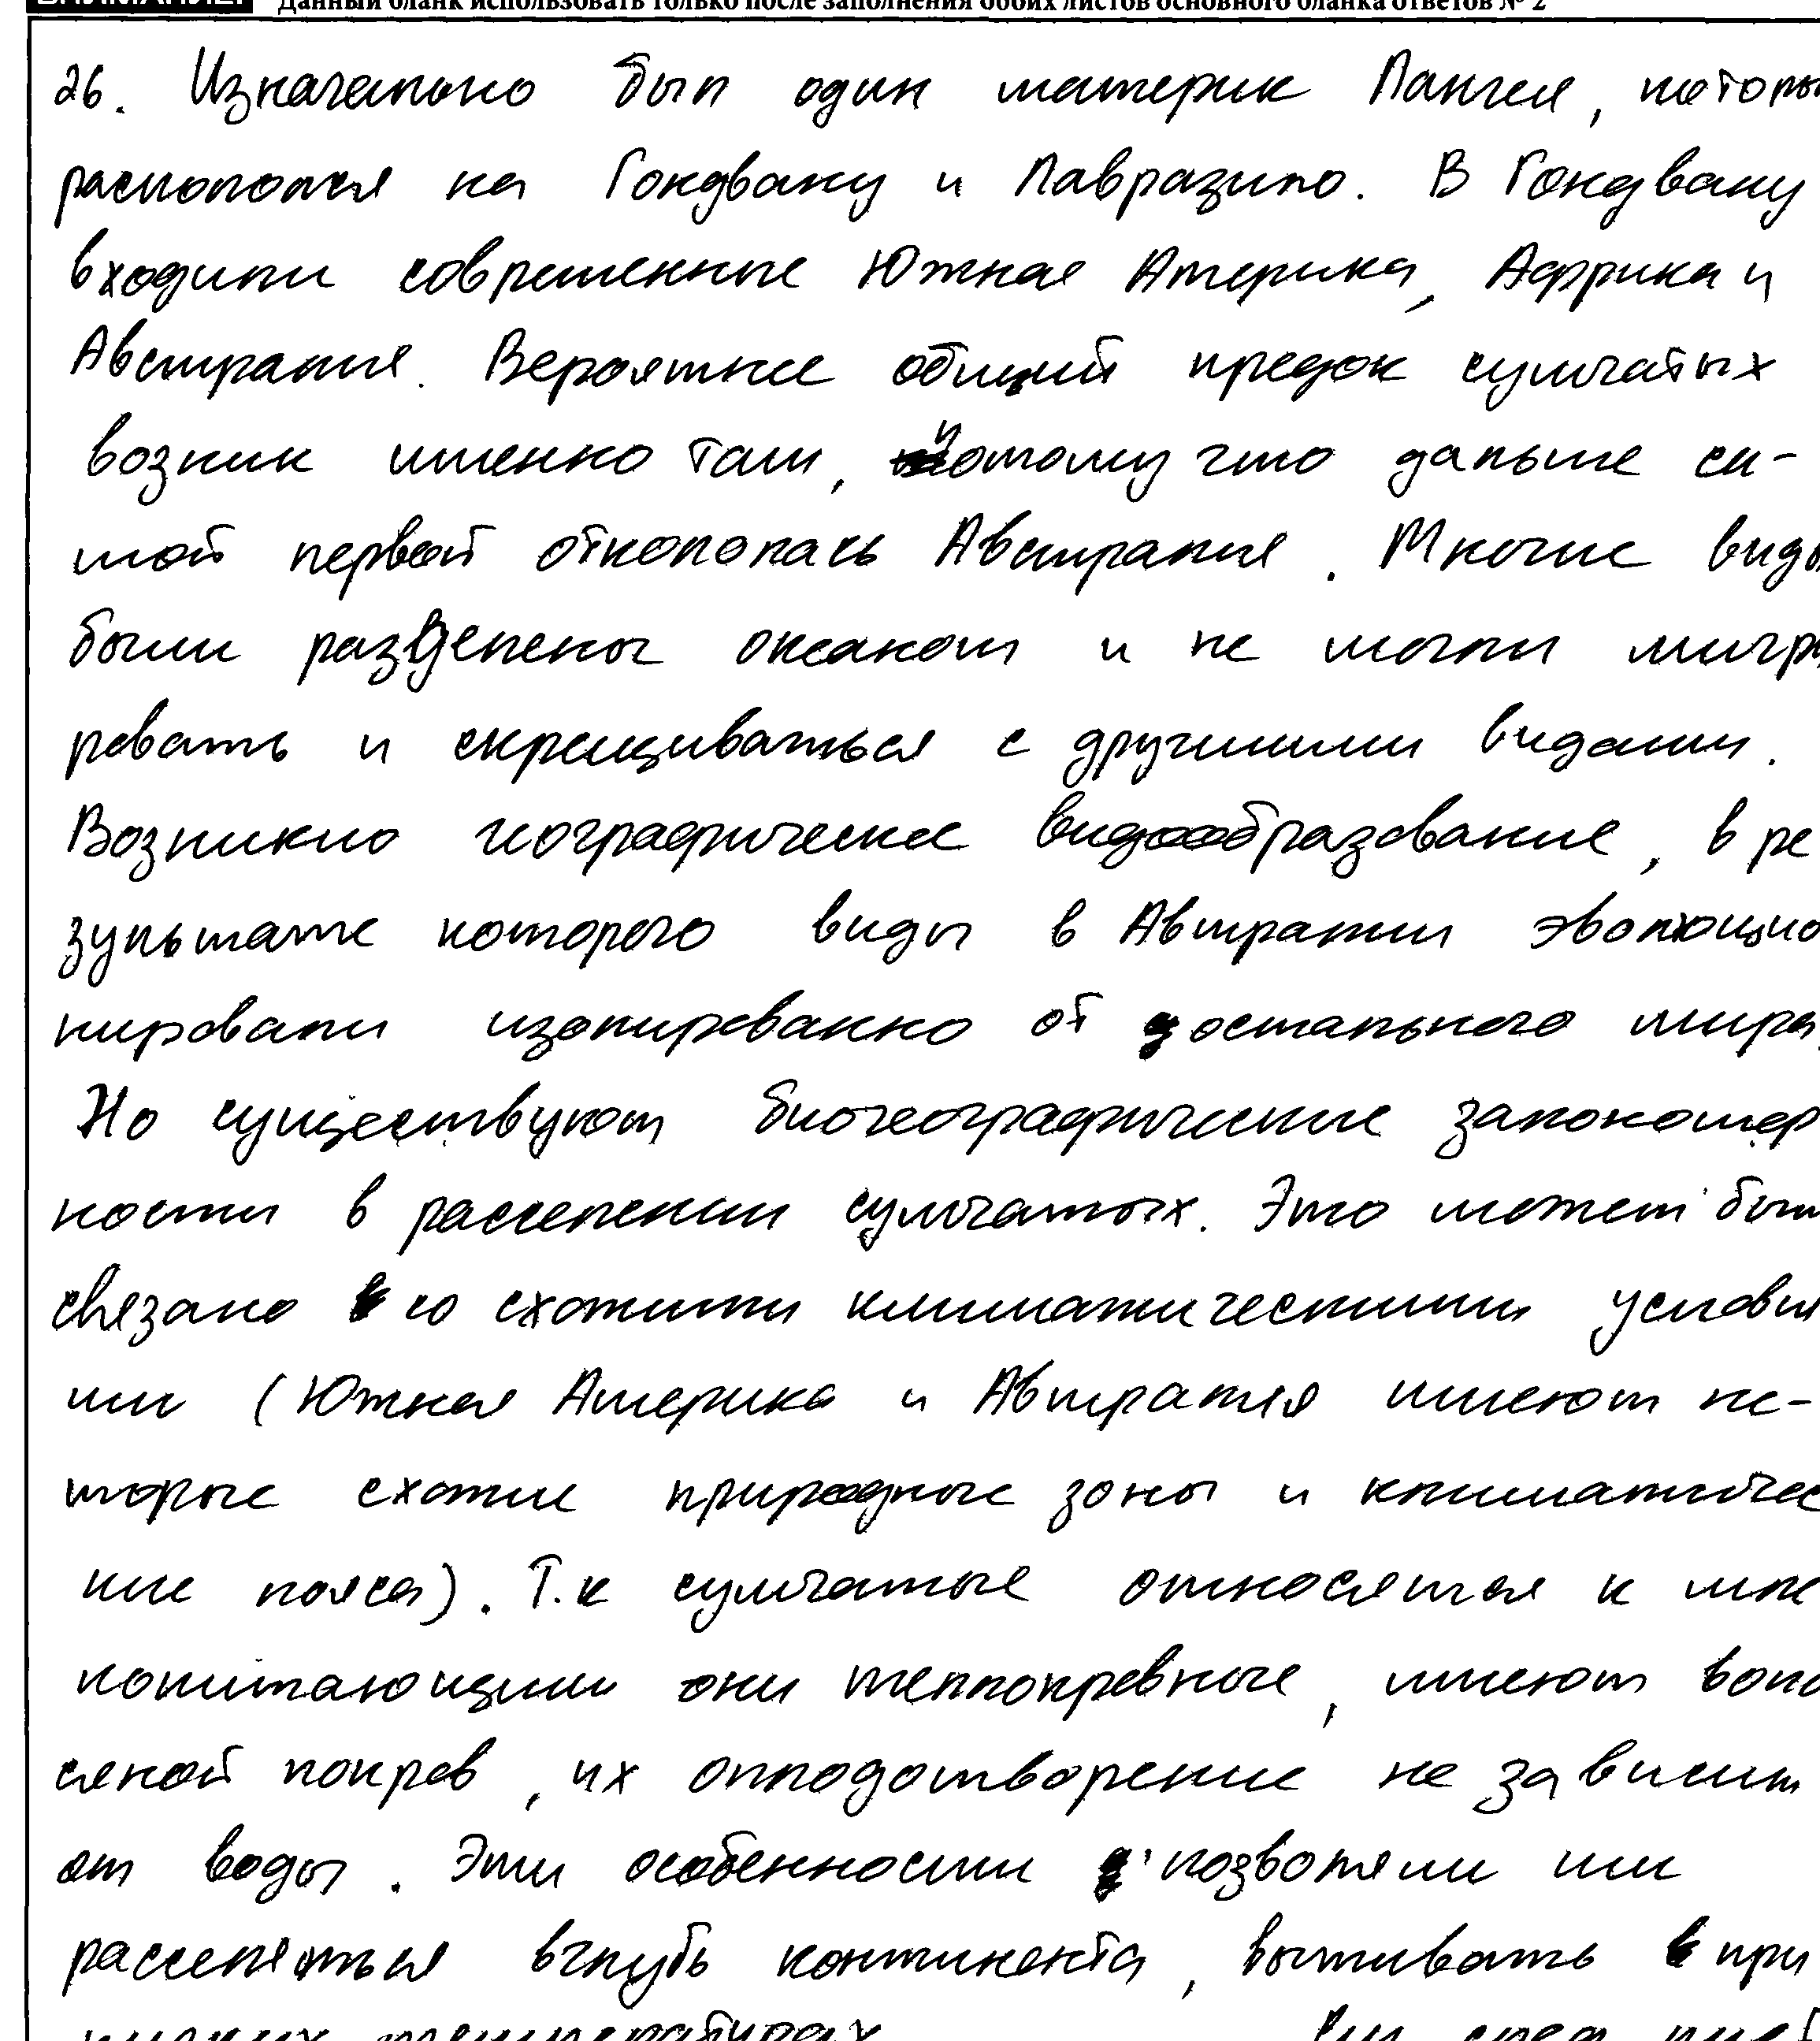 Данный бланк использовать только после заполнения обоих листов основного бланка ответов № 2
26. Изначально был один материк Пангея, которы
раскололся на Гондвану и Лавразию. В Гондвану
входили современные Южная Америка, Африка и
Австралия. Вероятнее общий предок сумчатых
возник именно там, потому что дальше са-
мой первой откололась Австралия. Многие виды
были разделены океаном и не могли мигри
ровать и скрещиваться с другими видами.
Возникло географическое видообразование, в ре
зультате которого виды в Автралии эволюцио
нировали изолированно от остального мира.
Но существуют биогеографические закономер
ности в расселении сумчатых. Это может быть
связано со схожими климатическими услови
ми (Южная Америка и Автралия имеют не-
торые схожие природные зоны и климатичес
кие пояса). Т.к сумчатые относятся к мле
копитающим они теплокровные, имеют воло
сяной покров, их оплодотворение не зависит
от воды. Эти особенности позволяли им
расселяться вглубь континента, выживать при
низких температурах